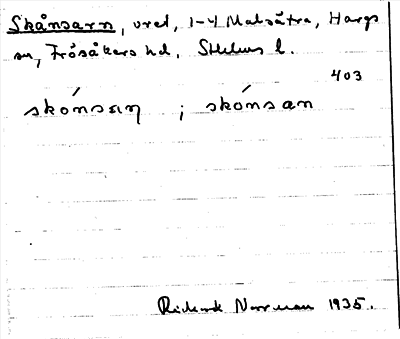 Skånsarn, vret, 1-4 Malsätra, Hargs
sn, Frösåkers hd, Sthlms l.
403
skónsaɳ ; skónsan
Rickard Norrman 1935.